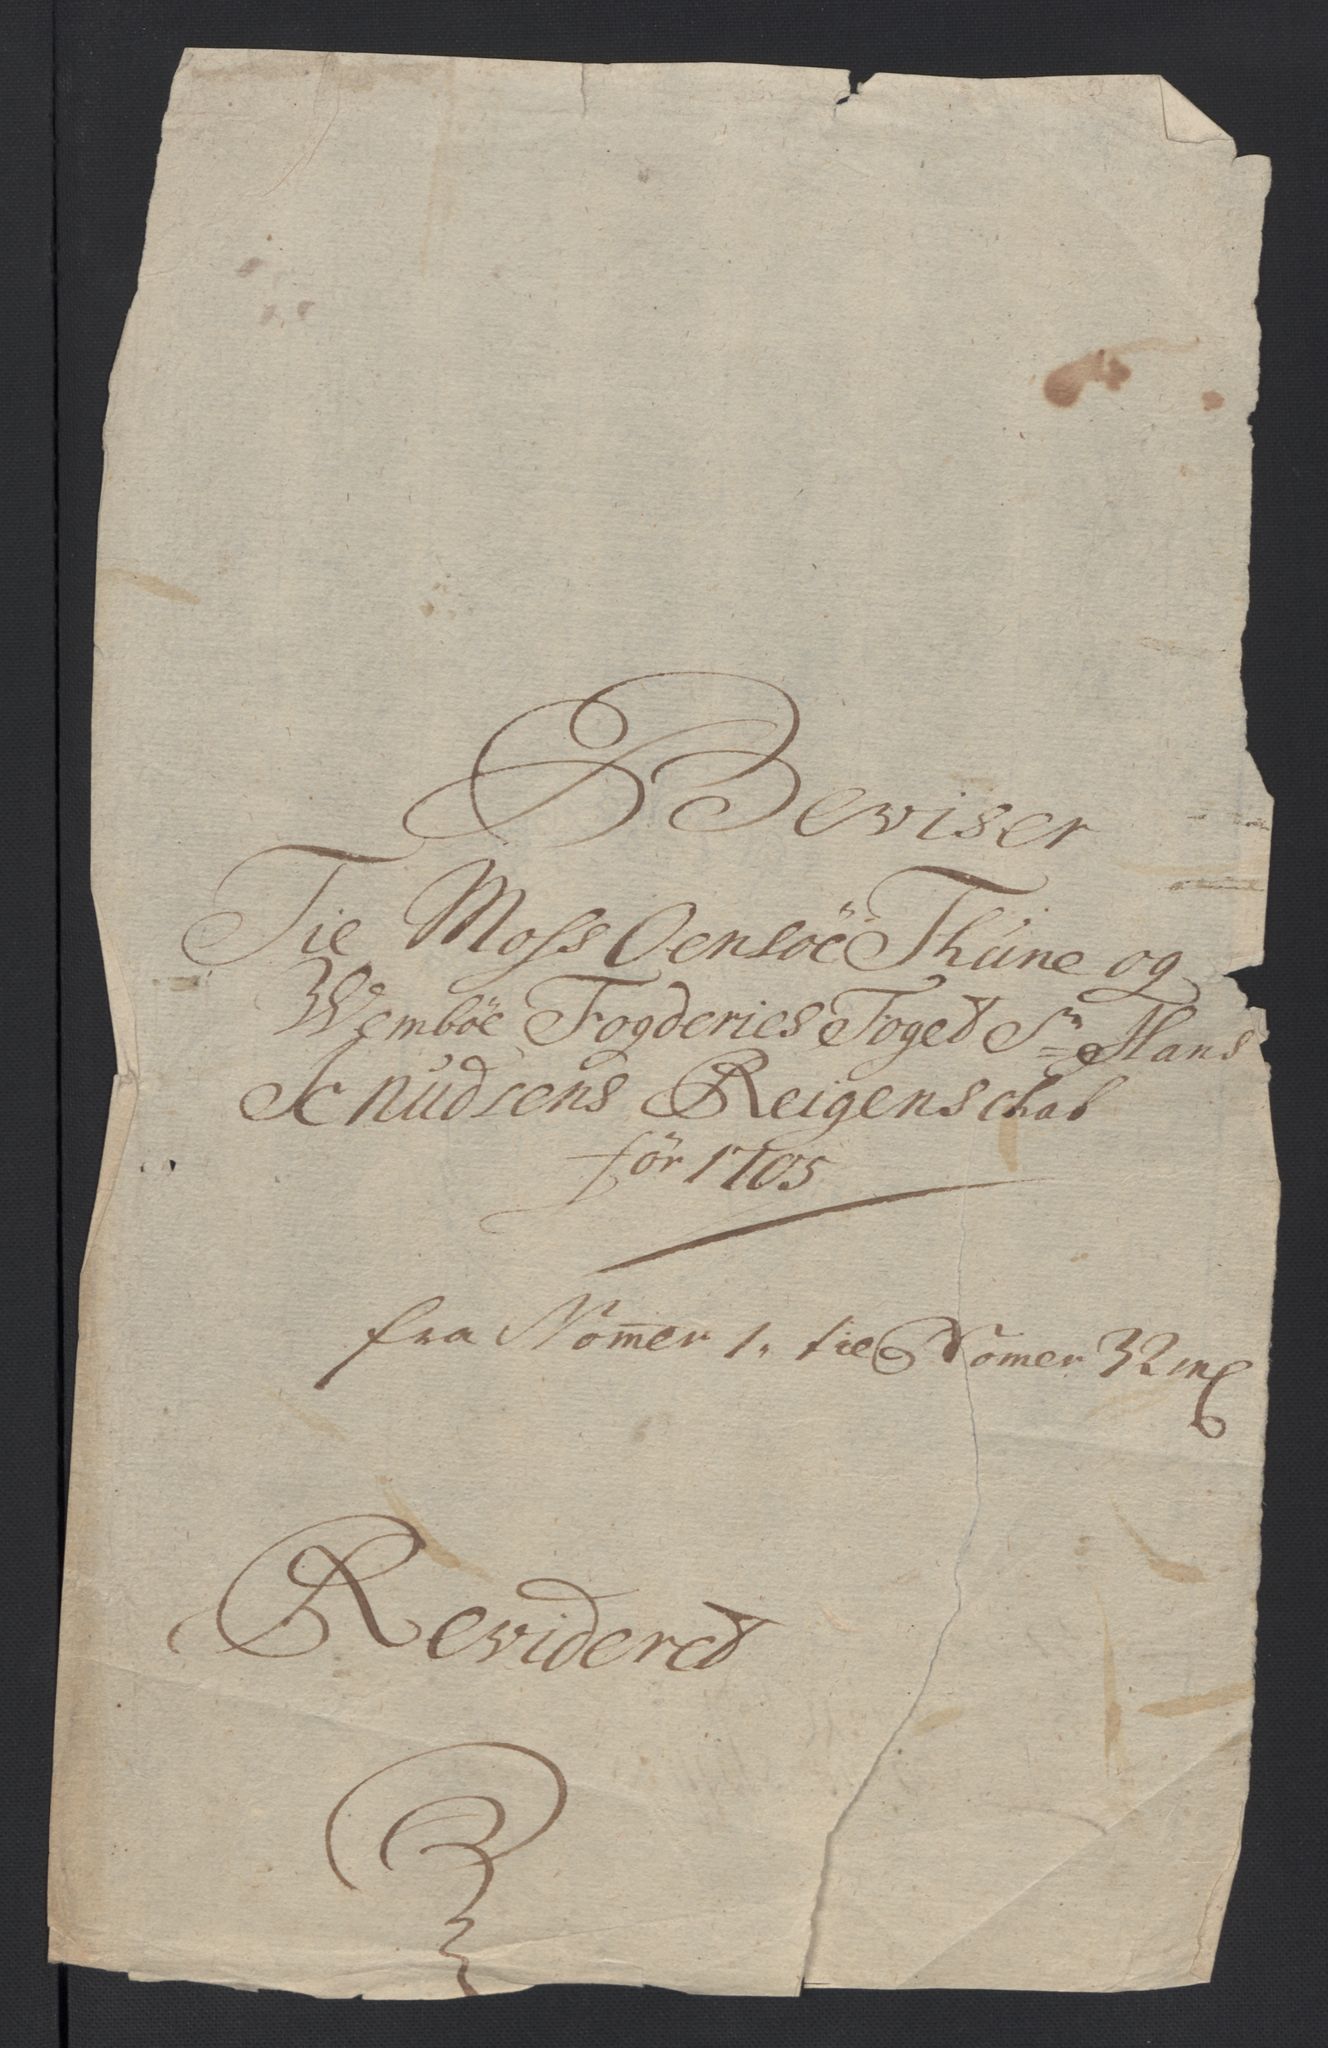 Beviser
Tie Moss Oensöe Thüne og
Wemböe Fogderies Foged Sr Hans
Knudsens Reigenschab
för 1705
fra Nom̄er 1. tie Nomer 32
Revideret